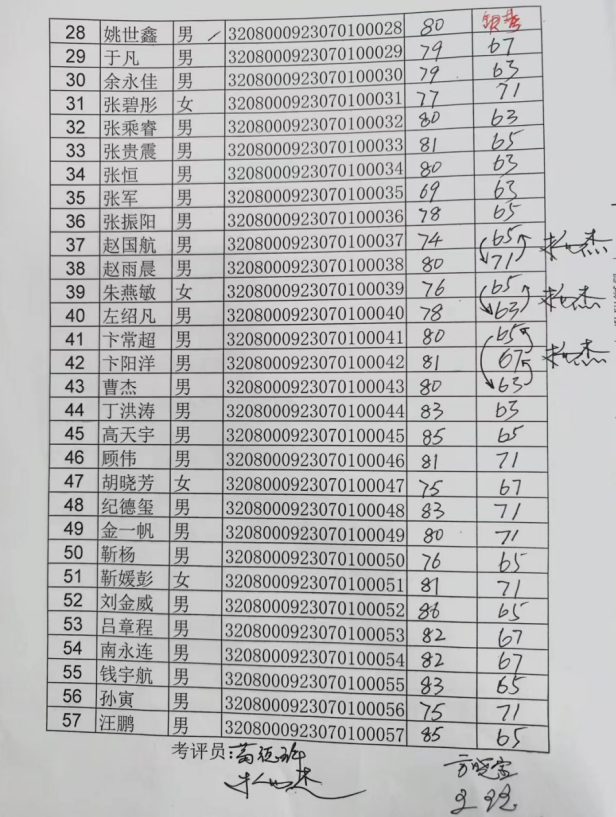 28 姚世鑫 男 3208000923070100028 80 缺考
29 于凡 男 3208000923070100029 79 67
30 余永佳 男 3208000923070100030 79 63
31 张碧彤 女 3208000923070100031 77 71
32 张乘睿 男 3208000923070100032 80 63
33 张贵震 男 3208000923070100033 81 65
34 张恒 男 3208000923070100034 80 63
35 张军 男 3208000923070100035 69 63
36 张振阳 男 3208000923070100036 78 65
37 赵国航 男 3208000923070100037 74 65
38 赵雨晨 男 3208000923070100038 80 71
39 朱燕敏 女 3208000923070100039 76 65
40 左绍凡 男 3208000923070100040 78 63
41 卞常超 男 3208000923070100041 80 65
42 卞阳洋 男 3208000923070100042 81 67
43 曹杰 男 3208000923070100043 80 63
44 丁洪涛 男 3208000923070100044 83 63
45 高天宇 男 3208000923070100045 85 65
46 顾伟 男 3208000923070100046 81 71
47 胡晓芳 女 3208000923070100047 75 67
48 纪德玺 男 3208000923070100048 83 71
49 金一帆 男 3208000923070100049 80 71
50 靳杨 男 3208000923070100050 76 65
51 靳媛彭 女 3208000923070100051 81 71
52 刘金威 男 3208000923070100052 86 65
53 吕章程 男 3208000923070100053 82 67
54 南永连 男 3208000923070100054 82 67
55 钱宇航 男 3208000923070100055 83 65
56 孙寅 男 3208000923070100056 75 71
57 汪鹏 男 3208000923070100057 85 65
考评员: